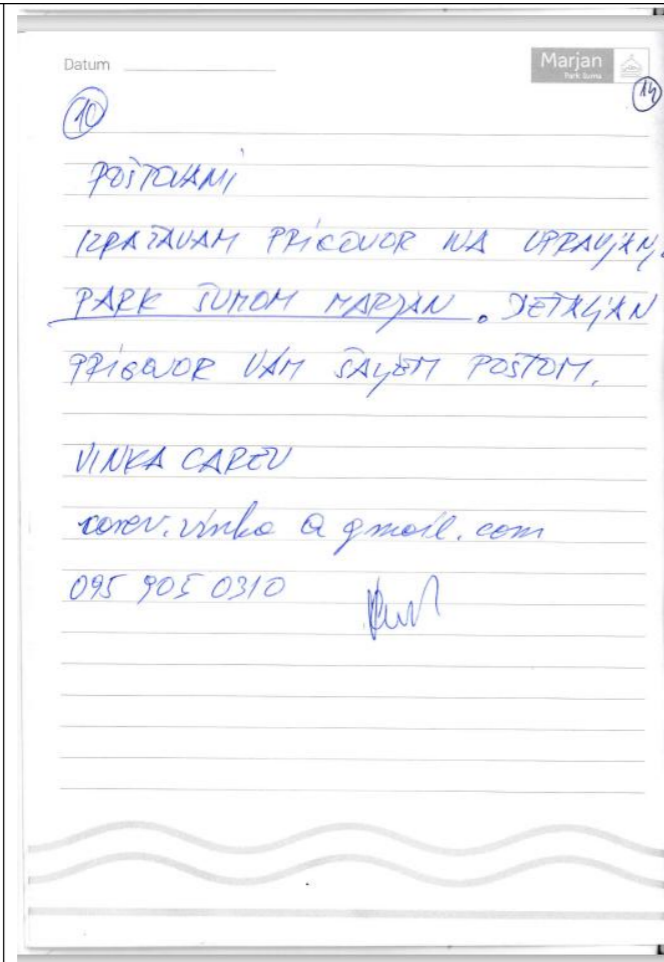 Datum
Marjan
Park šuma
14
10
POŠTOVANI
IZRAŽAVAM PRIGOVOR NA UPRAVLJANJ
PARK ŠUMOM MARJAN. DETALJAN
PRIGOVOR VAM ŠALJEM POŠTOM.
VINKA CAREV
carev.vinka @ gmail.com
095 905 0310